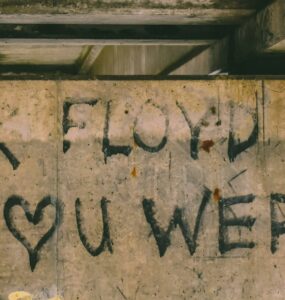 FLOYD
♥ U WER